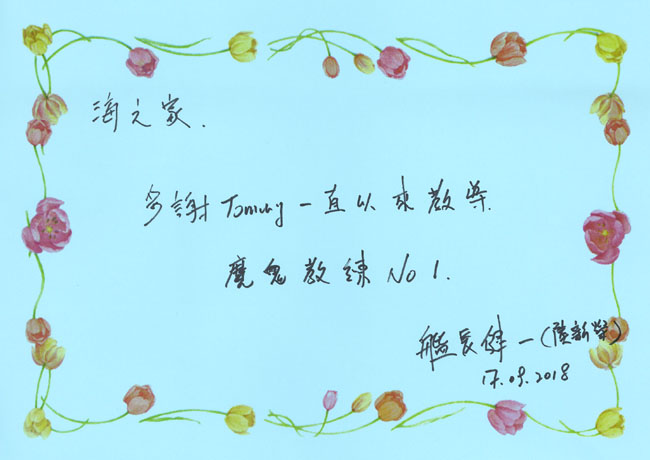 海之家.
多謝Tommy一直以來教導.
魔鬼教練 No 1.
艦長健一(陳新榮)
17.09.2018